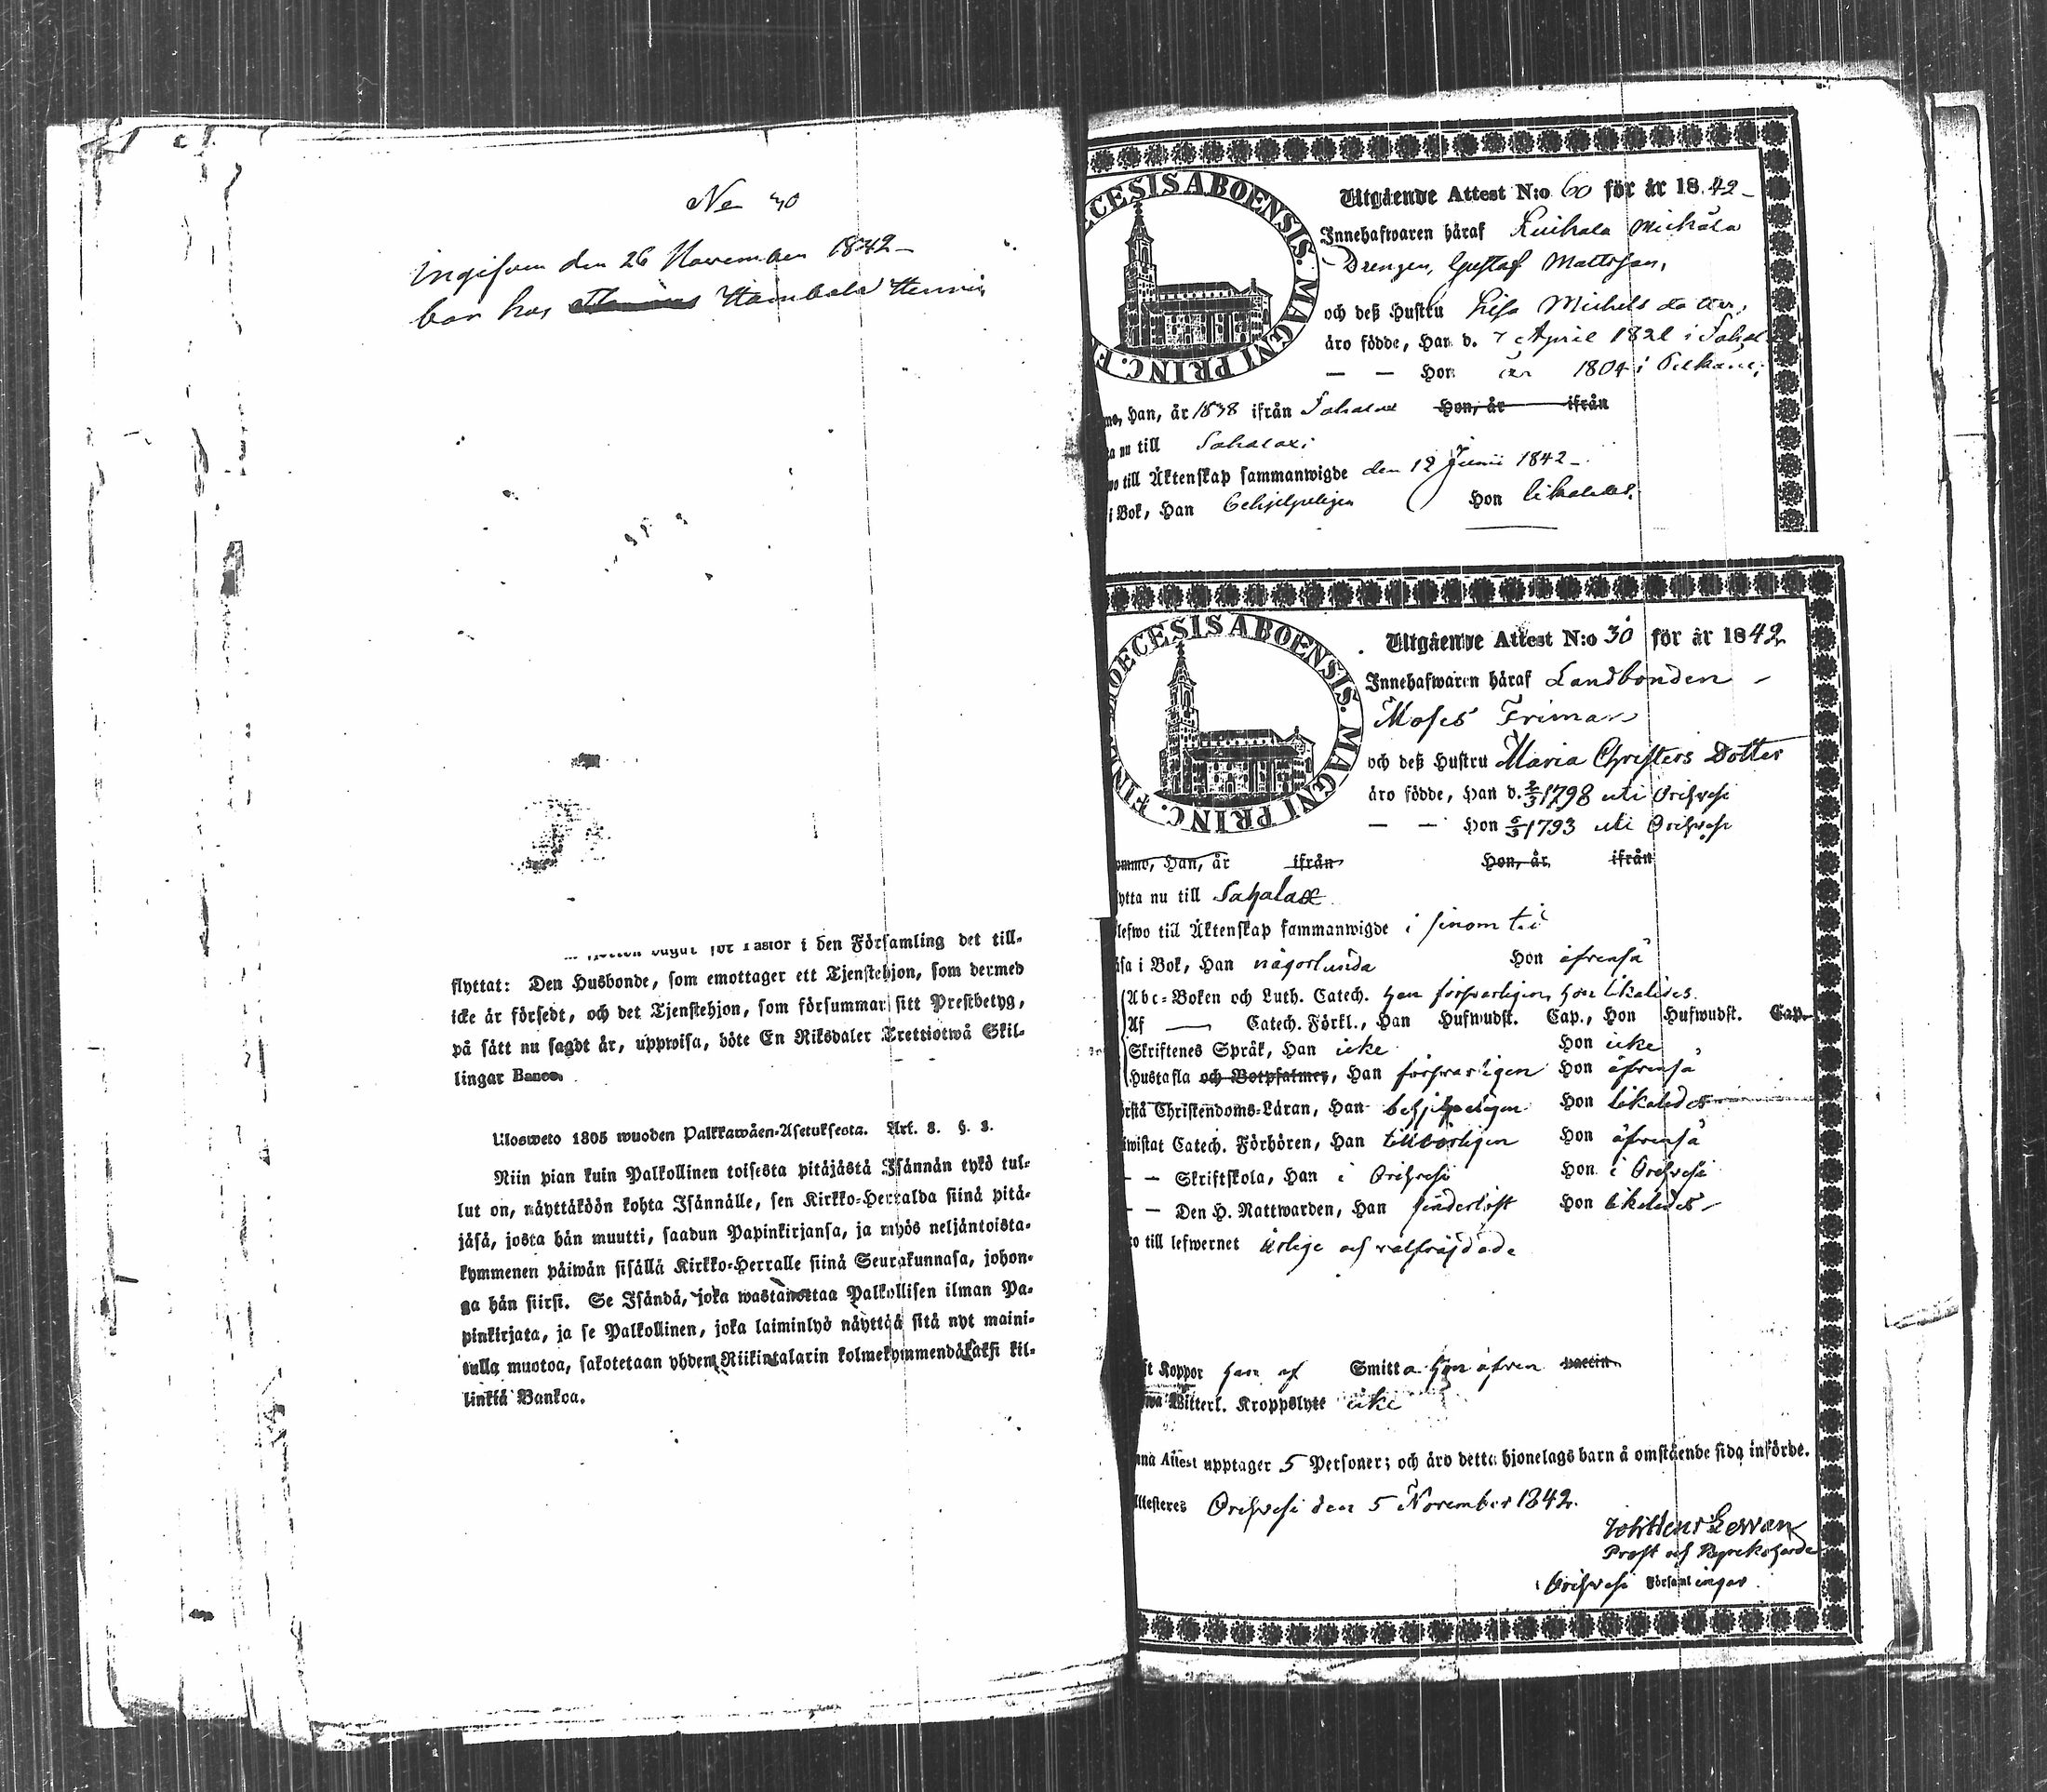 No 40
Ingifven den 26 November 1842 –
bor hos Hambala Henrik
för Pastor i den Församling det till-
flyttat: Den Husbonde, som emottager ett Tjenstehjon, som dermed
icke är försedt, och det Tjenstehjon, som försummar sitt Prestbetyg,
på sätt nu sagdt är, uppwisa, böte En Riksdaler Trettiotwå Skil-
lingar Banco.
Ulosweto 1805 wuoden Palkkawäen-Asetuksesta. Art. 8. §. 3.
Niin pian kuin Palkollinen toisesta pitäjästä Isännän tykö tul-
lut on, näyttäköön kohta Isännälle, sen Kirkko-Herralda siinä pitä-
jäsä, josta hän muutti, saadun Papinkirjansa, ja myös neljäntoista-
kymmenen päiwän sisällä Kirkko-Herralle siinä Seurakunnasa, johon-
ga hän siirsi. Se Isändä, joka wastanottaa Palkollisen ilman Pa-
pinkirjata, ja se Palkollinen, joka laiminlyö näyttää sitä nyt maini-
tulla muotoa, sakotetaan yhden Riikintalarin kolmekymmendäkaksi kil-
linkiä Bankoa.
ECESIS ABOENSIS. MAGNI PRINC. F
Utgående Attest N:o 60 för år 1842 –
Innehafwaren häraf Kuikala Mickola
Drengen, Gustaf Mattsson,
och deß Hustru Lisa Michels dotter,
äro födde, Han d. 7 April 1821 i Sahal
— — Hon år 1804 i Pelkäne;
mo, Han, år 1838 ifrån Sahalax Hon, år ifrån
ta nu till Sahalax;
wo till Äktenskap sammanwigde den 12 Junii 1842 –
i Bok, Han behjelpeligen Hon likaledes.
DIOECESIS ABOENSIS. MAGNI PRINC. FIN
Utgående Attest N:o 30 för år 1842
Innehafwaren häraf Landbonden –
Moses Friman
och deß Hustru Maria Christers Dotter
äro födde, Han d. 2/3 1798 uti Orihvesi
— — Hon 6/3 1793 uti Orihvesi
ommo, Han, år ifrån Hon, år ifrån
lytta nu till Sahalax
lefwo till Äktenskap sammanwigde i sinom tid
äsa i Bok, Han någorlunda Hon äfvenså
Abc-Boken och Luth. Catech. han försvarligen, hon likaledes.
Af — Catech. Förkl., Han Hufwudst. Cap., Hon Hufwudst. Cap.
Skriftenes Språk, Han icke Hon icke
Hustafla och Botpsalmer, Han försvarligen Hon äfvenså
örstå Christendoms-Läran, Han behjelpeligen Hon likaledes
iwistat Catech. Förhören, Han tillbörligen Hon äfvenså
— — Skriftskola, Han i Orihvesi Hon i Orihvesi
— — Den H. Nattwarden, Han sinderligt Hon likaledes –
ro till lefwernet ärlige och välfräjdade
ft Koppor han af Smitta hon äfven vaccin
fwa Witterl. Kroppslyte icke
nna Attest upptager 5 Personer; och äro detta hjonelags barn å omstående sida införde.
Attesteres Orihvesi den 5 November 1842.
Prost och Kyrkoherde
i Orihvesi Församlingar.